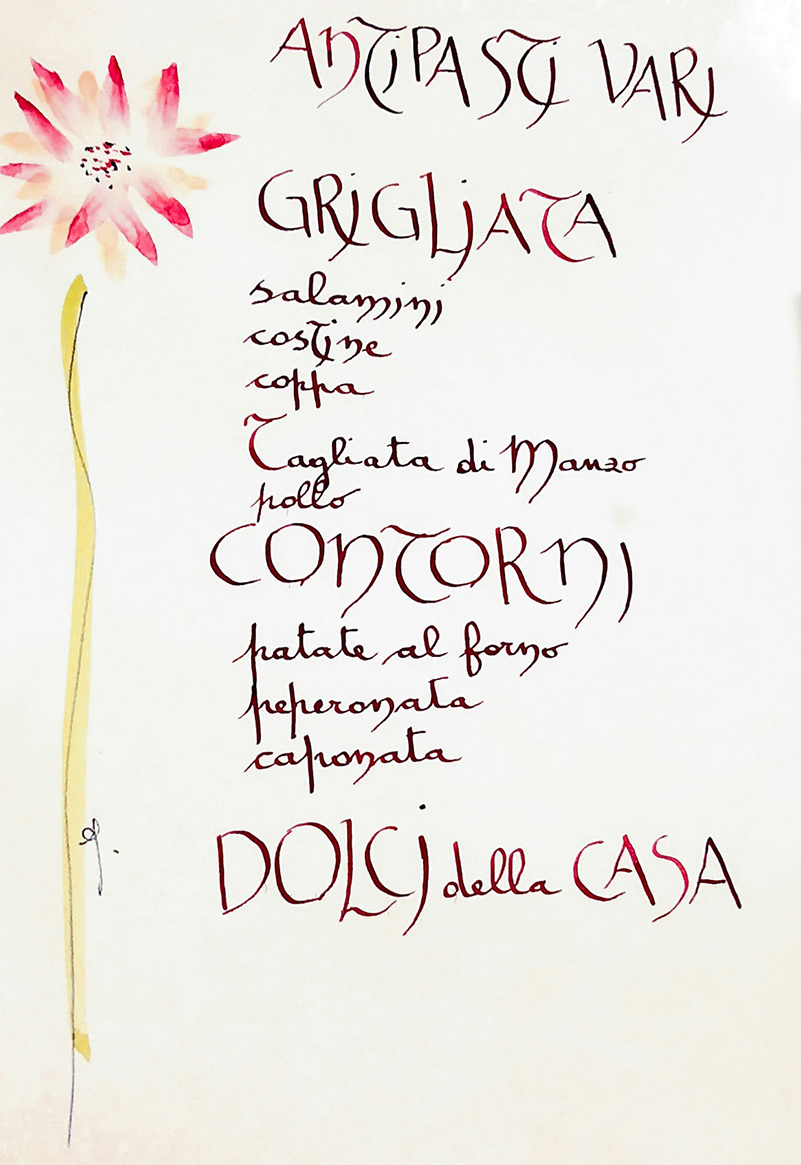 ANTIPASTI VARI
GRIGLIATA
salamini
costine
coppa
Tagliata di Manzo
pollo
CONTORNI
patate al forno
peperonata
caponata
DOLCI della CASA